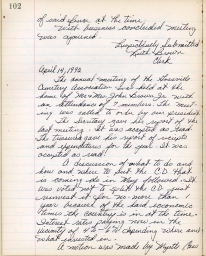 102
of said Lane at the time.
With business concluded meeting
was adjourned.
Respectfully Submitted
Ruth Brown
Clerk
April 14, 1992
The annual meeting of the
Cemetery Association was held at the
home of Mr & Mrs John Brown Sr. with
an attendance of 7 members. The meet-
ing was called to order by our president
The Secretary gave the report of the
last meeting. It was accepted as read.
The Treasurer gave his report of receipts
and expenditures for the year. It was
accepted as read.
A discussion of what to do and
how and where to put the C.D. that
is coming due in May followed. It
was voted not to split the C.D. just
reinvest it for no more than 1
year because of the bad economic
times the country is in at the time.
Interest rates paying now in the
vicinity of 4% - 6% depending where and
what invested in.
A motion was made by Wyatt